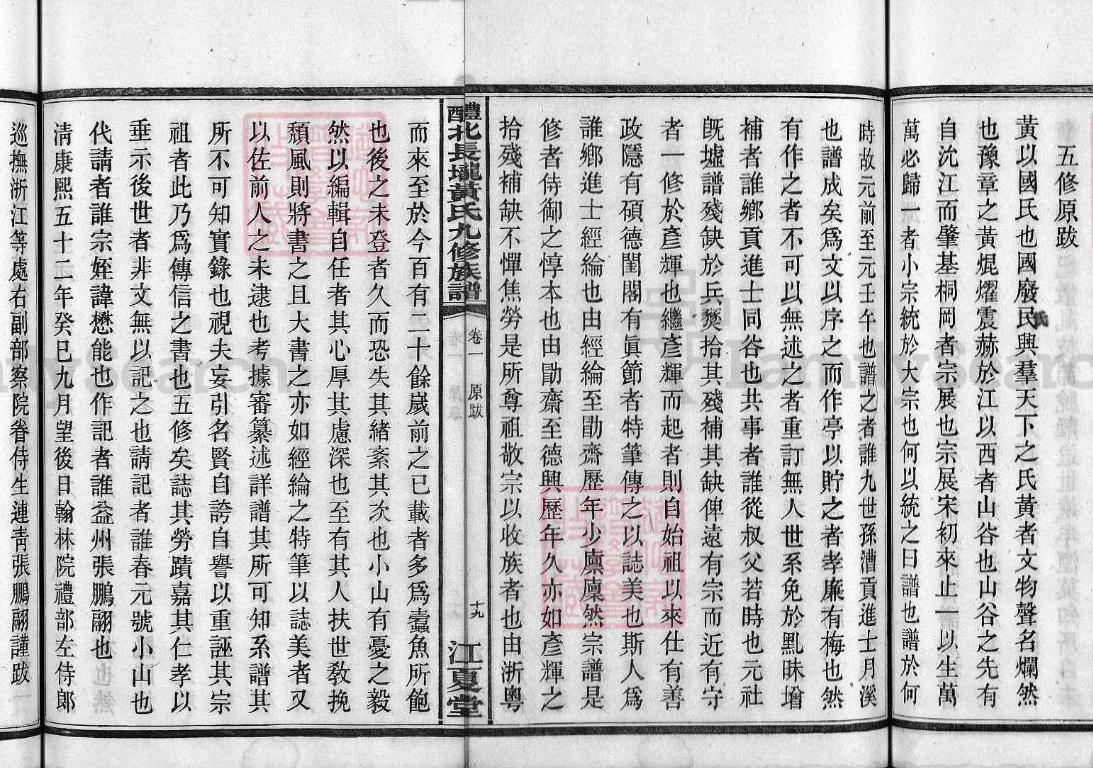 五修原跋
黃以國氏也國廢民與羣天下之氏黃者文物聲名爛然
也豫章之黃焜燿震赫於江以西者山谷也山谷之先有
自沇江而肇基桐岡者宗展也宗展宋初來止一以生萬
萬必歸一者小宗統於大宗也何以統之曰譜也譜於何
時故元前至元壬午也譜之者誰九世孫漕貢進士月溪
也譜成矣爲文以序之而作亭以貯之者孝廉有梅也然
有作之者不可以無述之者重訂無人世系免於㸃昧增
補者誰鄉貢進士同谷也共事者誰從叔父若時也元社
旣墟譜殘缺於兵燹拾其殘補其缺俾遠有宗而近有守
者一修於彥輝也繼彥輝而起者則自始祖以來仕有善
政隱有碩德閨閣有眞節者特筆傳之以誌美也斯人爲
誰鄉進士經綸也由經綸至勖齋歷年少凜凜然宗譜是
修者侍御之惇本也由勖齋至德興歷年久亦如彥輝之
拾殘補缺不憚焦勞是所尊祖敬宗以收族者也由浙粵
醴北長壠黃氏九修族譜
卷一
原跋
十九
江夏堂
而來至於今百有二十餘嵗前之已載者多爲蠹魚所飽
也後之未登者久而恐失其緒紊其次也小山有憂之毅
然以編輯自任者其心厚其慮深也至有其人扶世敎挽
頹風則將書之且大書之亦如經綸之特筆以誌美者又
以佐前人之未逮也考據審纂述詳譜其所可知系譜其
所不可知實錄也視夫妄引名賢自誇自譽以重誣其宗
祖者此乃爲傳信之書也五修矣誌其勞蹟嘉其仁孝以
垂示後世者非文無以記之也請記者誰春元號小山也
代請者誰宗姪諱懋能也作記者誰益州張鵬翮也
淸康熙五十二年癸巳九月望後日翰林院禮部左侍郞
巡撫浙江等處右副部察院眷侍生連靑張鵬翮謹跋